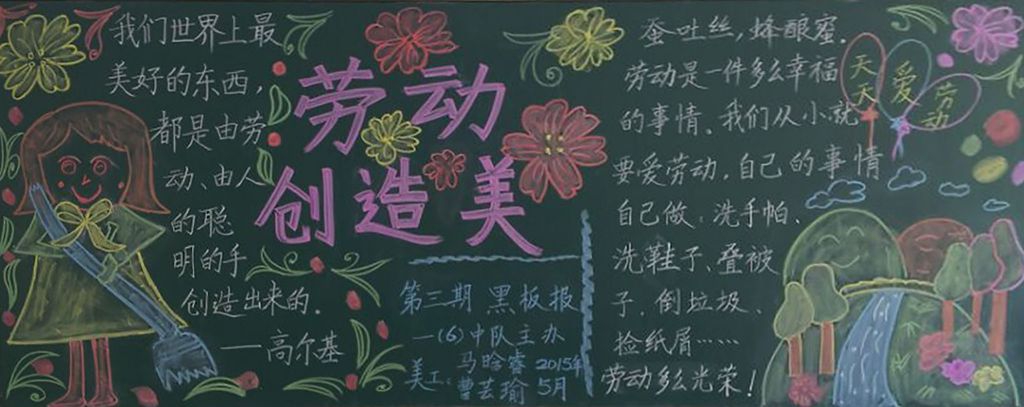 我们世界上最
美好的东西，
都是由劳
动、由人
的聪
明的手
创造出来的.
——高尔基
劳动
创造美
第三期 黑板报
一(6)中队主办
美工:马晗睿 2015年
曹芸瑜 5月
蚕吐丝，蜂酿蜜.
劳动是一件多么幸福
的事情、我们从小就
要爱劳动，自己的事情
自己做：洗手帕、
洗鞋子、叠被
子、倒垃圾、
捡纸屑……
劳动多么光荣！
天天
爱
劳动